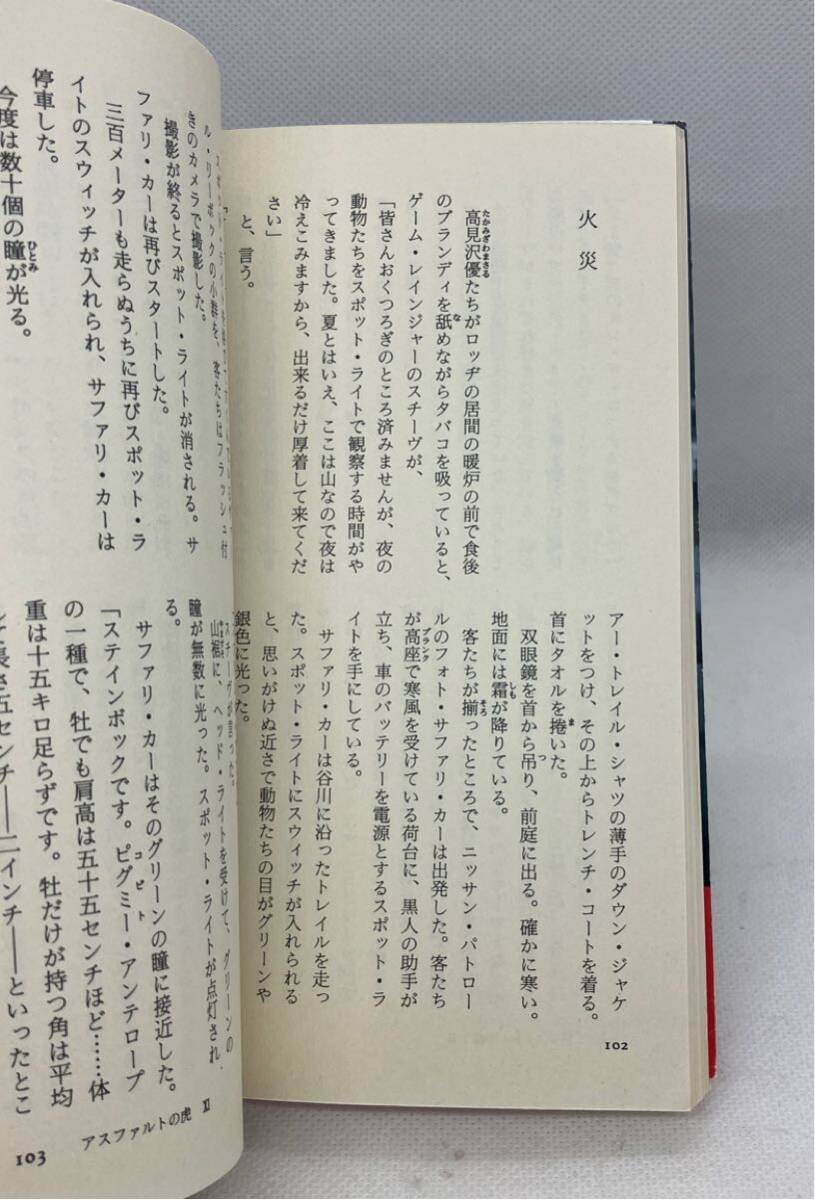 火災
高見沢優たちがロッヂの居間の暖炉の前で食後
のブランディを舐めながらタバコを吸っていると、
ゲーム・レインジャーのスチーヴが、
「皆さんおくつろぎのところ済みませんが、夜の
動物たちをスポット・ライトで観察する時間がや
ってきました。夏とはいえ、ここは山なので夜は
冷えこみますから、出来るだけ厚着して来てくだ
さい」
と、言う。
アー・トレイル・シャツの薄手のダウン・ジャケ
ットをつけ、その上からトレンチ・コートを着る。
首にタオルを捲いた。
双眼鏡を首から吊り、前庭に出る。確かに寒い。
地面には霜が降りている。
客たちが揃ったところで、ニッサン・パトロー
ルのフォト・サファリ・カーは出発した。客たち
が高座で寒風を受けている荷台に、黒人の助手が
立ち、車のバッテリーを電源とするスポット・ラ
イトを手にしている。
サファリ・カーは谷川に沿ったトレイルを走っ
た。スポット・ライトにスウィッチが入れられる
と、思いがけぬ近さで動物たちの目がグリーンや
銀色に光った。
102
ル・リーボックの小群を、客たちはフラッシュ付
きのカメラで撮影した。
撮影が終るとスポット・ライトが消される。サ
ファリ・カーは再びスタートした。
三百メーターも走らぬうちに再びスポット・ラ
イトのスウィッチが入れられ、サファリ・カーは
停車した。
今度は数十個の瞳が光る。
スチーヴが言った。
山裾に、ヘッド・ライトを受けて、グリーンの
瞳が無数に光った。スポット・ライトが点灯され
る。
サファリ・カーはそのグリーンの瞳に接近した。
「ステインボックです。ピグミー・アンテロープ
の一種で、牡でも肩高は五十五センチほど……体
重は十五キロ足らずです。牡だけが持つ角は平均
して長さ五センチ――二インチ――といったとこ
アスファルトの虎 XI
103